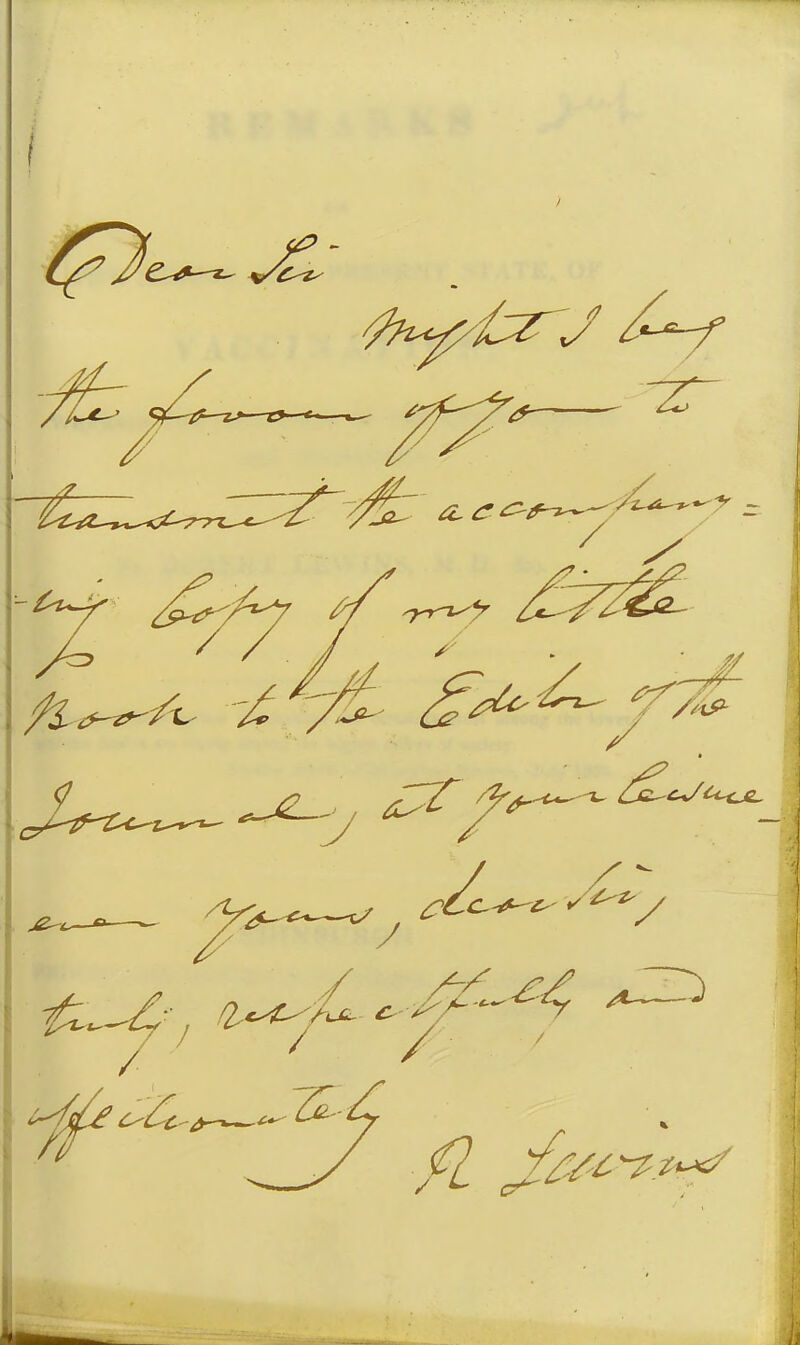 Dear Sir
Might I beg
the favour of you to
transmit the accompany=
-ing Copy of my little
Book to the Editor of the
Journal, at your leisure_
ever yours, dear Sir,
truly, respectfully and
affectionately
R Lewins